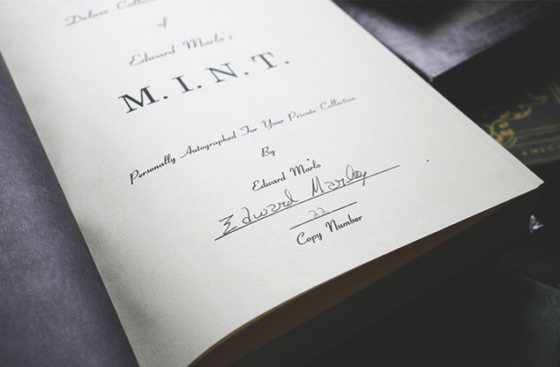 Deluxe
of
Edward Marlo's
M.I.N.T.
Personally Autographed For Your Private Collection
By
Edward Marlo
Edward Marlo
22
Copy Number